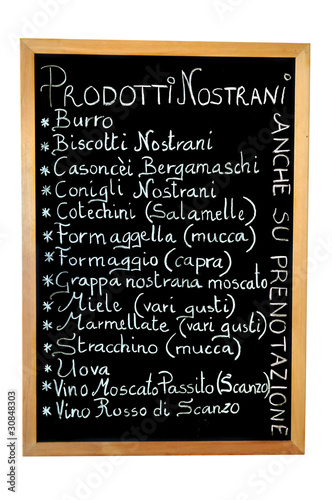 PRODOTTI NOSTRANI
* Burro
* Biscotti Nostrani
* Casoncèi Bergamaschi
* Conigli Nostrani
* Cotechini (Salamelle)
* Formaggella (mucca)
* Formaggio (capra)
* Grappa nostrana moscato
* Miele (vari gusti)
* Marmellate (vari gusti)
* Stracchino (mucca)
* Uova
* Vino Moscato Passito (Scanzo)
* Vino Rosso di Scanzo
ANCHE SU PRENOTAZIONE
30848303